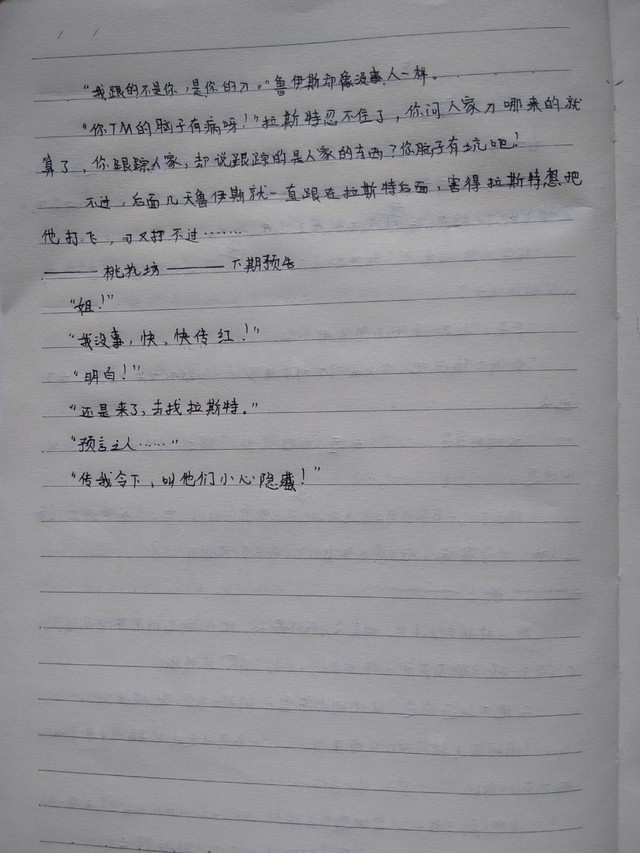 “我跟的不是你,是你的刀。”鲁伊斯却像没事人一样。
“你TM的脑子有病呀!”拉斯特忍不住了,你问人家刀哪来的就
算了,你跟踪人家,却说跟踪的是人家的东西?你脑子有坑吧!
不过,后面几天鲁伊斯就一直跟在拉斯特后面,害得拉斯特想把
他打飞,可又打不过……
——— 桃花坊 ——— 下期预告
“姐!”
“我没事,快,快传红!”
“明白!”
“还是来了,去找拉斯特。”
“预言之人……”
“传我令下,叫他们小心隐藏!”